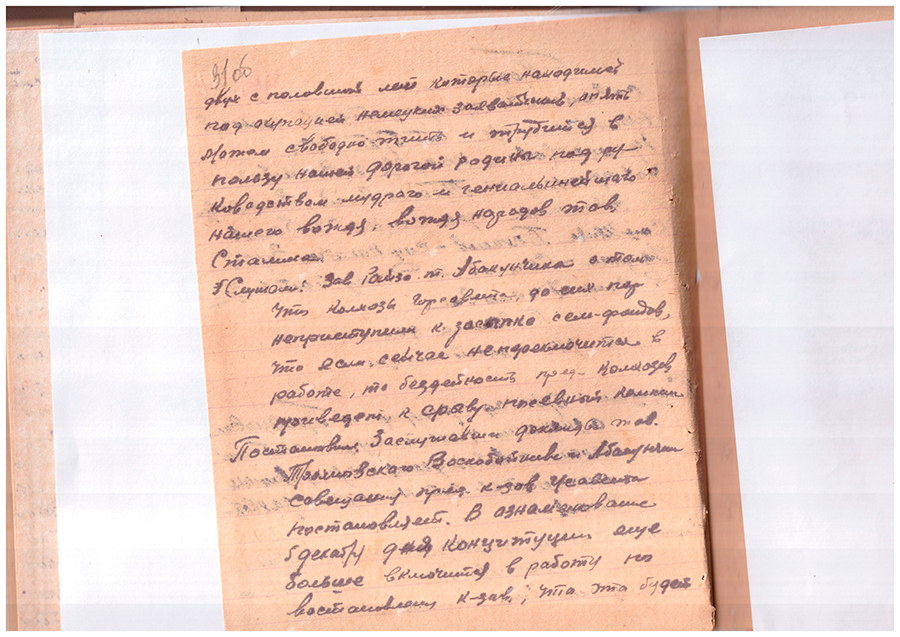 3/об
двух с половиной лет которые находимся
под окупацией немецких захватчиков, опять
можем свободно жить и трубитися в
ползу нашей дорогой родины под ру-
ководством мудраго и гениальнейшаго
нашего вождя, вождя народов тов.
Сталина.
Слушали: Зав Райзо т. Абакунчика о том
что колхозы горсовета, до сих пор
неприступили к засыпке сем-фондов,
что если сейчас непереключится в
работе, то бездейность пред. колхозов
приведет к срыву посевной кампан
Постановили, Заслушавши доклады тов.
Воскобойника и Абакунчик
совещания пред. к-зов
постановляет. В азнаменование
5 декабря дня концитуции еще
больше включится в работу по
востановлени к-зов, что это будет